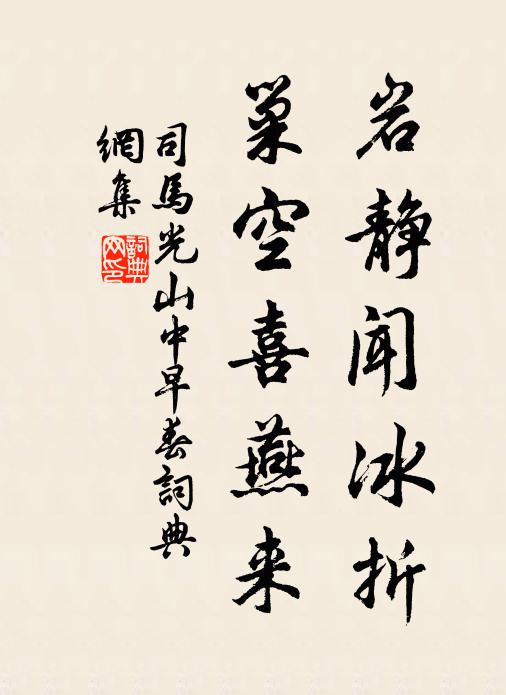 岩静闻冰折
巢空喜燕来
司馬光山中早春詞典
網集
詞典網印